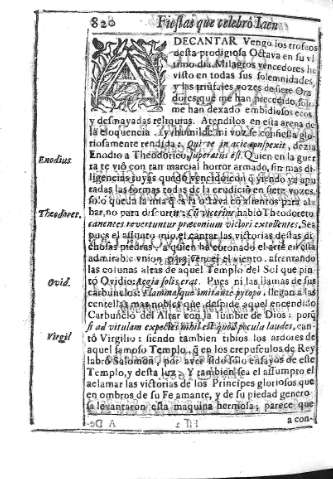 820 Fiestas que celebró Iaen
A DECANTAR Vengo los trofeos
desta prodigiosa Octava en su vl
timo dia Milagos vencedores he
visto en todas sus solemnidades,
y las triunfales vozes de siete Ora
dores que me han precedido, solo
me han dexado embidiosos ecos
y desmayadas reliquias. Atendilos en esta arena de
la eloquencia, y humilde mi voz le confiesa glo
riosamente rendida:
Enodio a Theodorico,
Enodius.
rra te vió con tan marcial horror armado, sin mas di
ligencias
tadas las formas todas de la erudicion en siete vozes,
solo queda la mia
bar, no para discurrir: habló Theodoreto
Theodores.
canentes revertuntur præconium victori extollentes, Ser
pues el assunto mio, el cantar las victorias destas di
chosas piedras, a quien ha coronado el arte en esta
admirable vnion para vencer el viento, afrentando
las colunas altas de aquel Templo del Sol que pin
Ovid.
tó Ovidio: Regia solis erat. Pues ni las llamas de sus
carbunclos: Flammasque imitante pyropo, llegan a las
centellas mas nobles que despide aquel encendido
Carbunclo del Altar con la lumbre de Dios: porq̃
Virgil
si ad vitulam expectes nihil est quod pocula laudes, can
tó Virgilio: siendo tambien tibios los ardores de
aquel famoso Templo, q̃ en los crepusculos de Rey
labró Salomon, por aver sido solo ensayos de este
Templo, y desta luz. Y tambien sea el assumpto el
aclamar las victorias de los Principes gloriosos que
en ombros de su Fe amante, y de su piedad genero
sa levantaron esta maquina hermosa, parece que
a con-